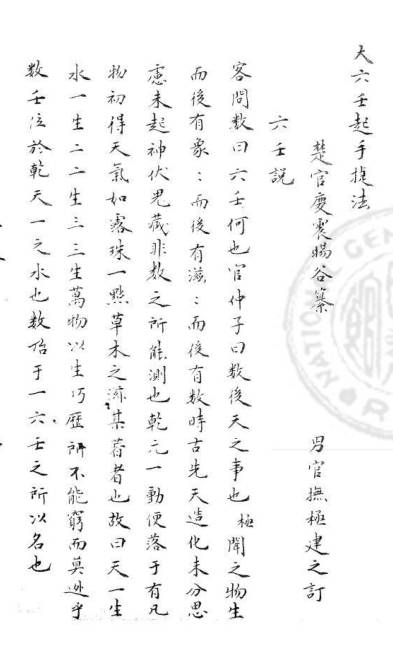 大六壬起手捷法
楚官慶裳暘谷纂　男官撫極建之訂
六壬説
客問数曰六壬何也官仲子曰数後天之事也極聞之物生
而後有象：而後有滋：而後有数時古先天造化未分思
慮未起神伏鬼藏非数之所能測也乾元一動便落于有凡
物初得天氣如露珠一㸃草木之滋其着者也故曰天一生
水一生二二生三三生萬物以生巧歷所不能窮而莫逃乎
数壬位於乾天一之水也数殆于一六壬之所以名也
NATION GEN R